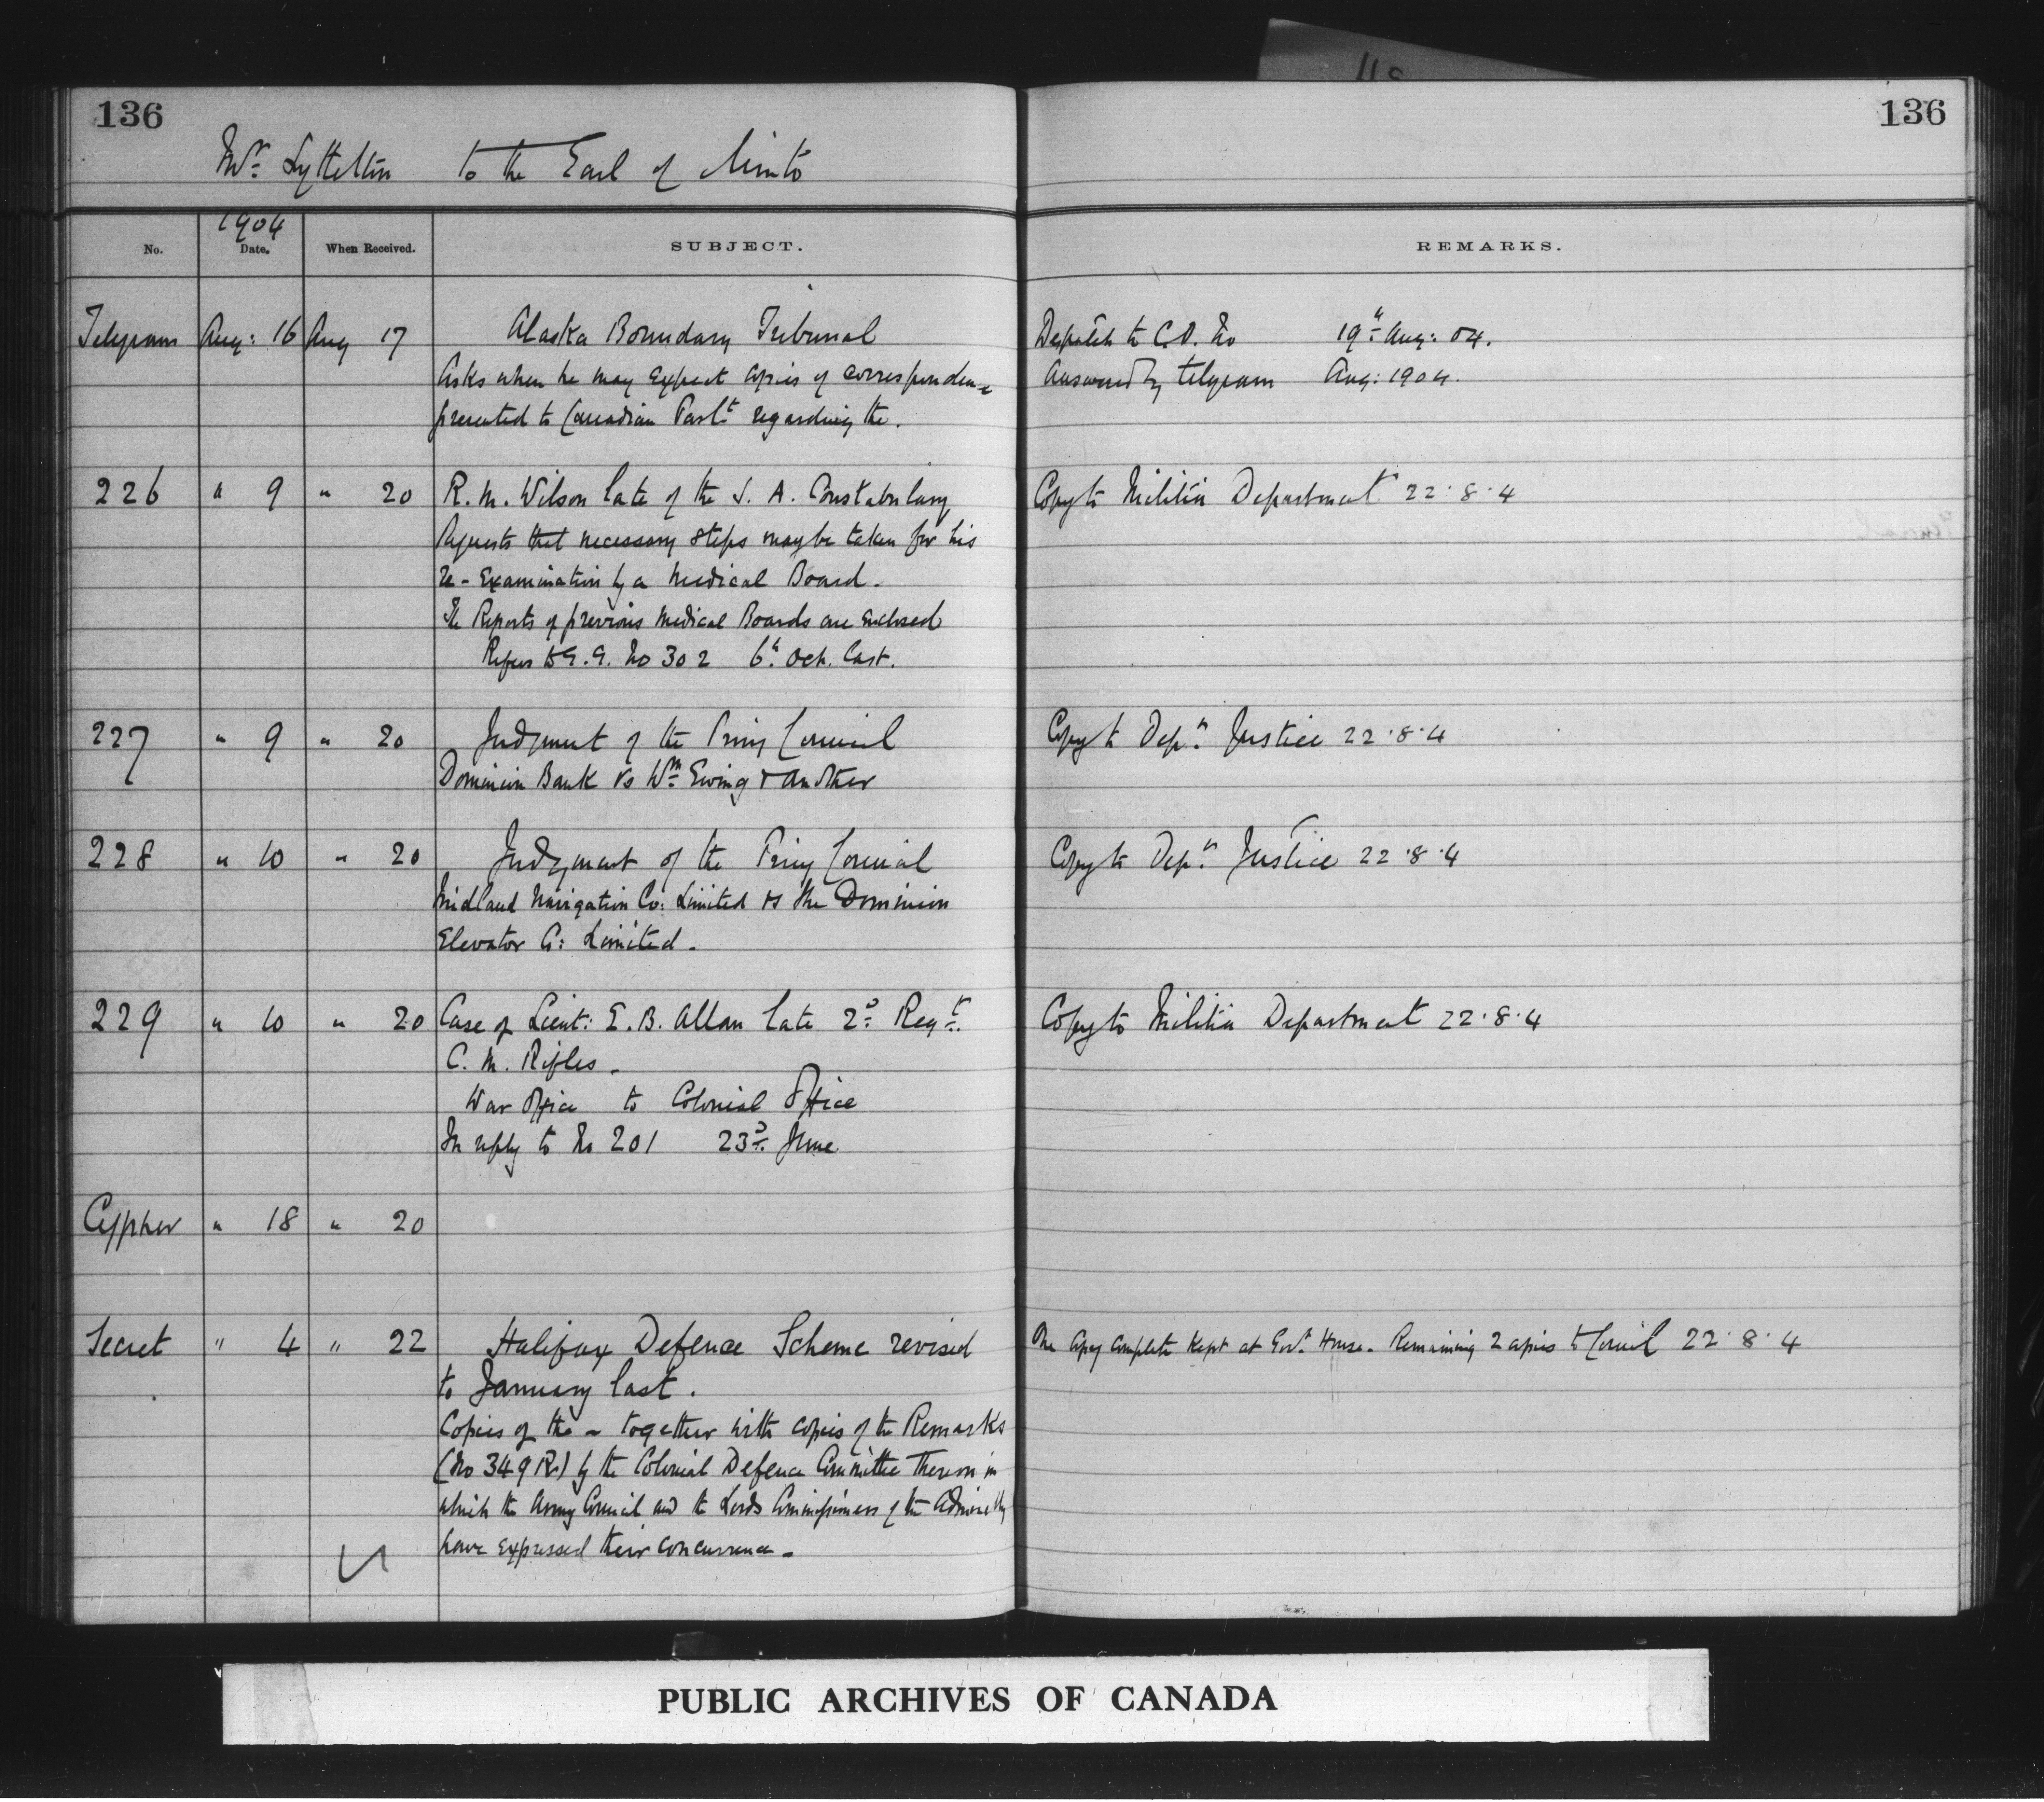 136
136
Mr. Lyttelton to the Earl of Minto
1904
No. Date. When Received. SUBJECT. REMARKS.
Telegram Aug: 16 Aug 17 Alaska Boundary Tribunal Despatch to C.O. No 19th Aug: 04.
Asks when he may expect copies of correspondence Answered by telegram Aug: 1904.
presented to Canadian Parlt. regarding the.
226 " 9 " 20 R. M. Wilson late of the S. A. Constabulary Copy to Militia Department 22.8.4
Requests that necessary steps may be taken for his
re-Examination by a Medical Board.
The Reports of previous Medical Boards are enclosed
Refers to G. G. No 302 6th Oct. last.
227 " 9 " 20 Judgment of the Privy Council Copy to Dept. Justice 22.8.4
Dominion Bank vs Wm. Ewing & another
228 " 10 " 20 Judgment of the Privy Council Copy to Dept. Justice 22.8.4
Midland Navigation Co: Limited vs the Dominion
Elevator Co: Limited.
229 " 10 " 20 Case of Lieut: E. B. Allan late 2d. Regt. Copy to Militia Department 22.8.4
C. M. Rifles.
War Office to Colonial Office
In reply to No 201 23d. June
Cypher " 18 " 20
Secret " 4 " 22 Halifax Defence Scheme revised One Copy complete kept at Govt. House. Remaining 2 copies to Council 22.8.4
to January last.
Copies of the - together with copies of the Remarks
(No 349 R.) by the Colonial Defence Committee thereon in
which the Army Council and the Lords Commissioners of the Admiralty
have expressed their concurrence.
PUBLIC ARCHIVES OF CANADA